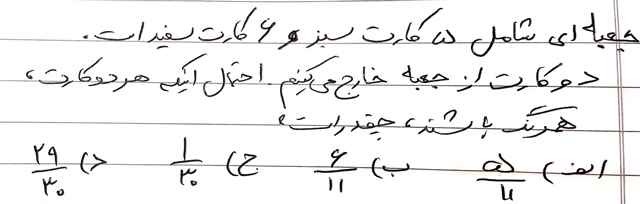 جعبه ای شامل ۵ کارت سبز و ۶ کارت سفید است.
دو کارت از جعبه خارج می‌کنیم. احتمال اینکه هر دو کارت،
همرنگ باشند، چقدر است؟
الف) ۵/۱۱ ب) ۶/۱۱ ج) ۱/۳۰ د) ۲۹/۳۰